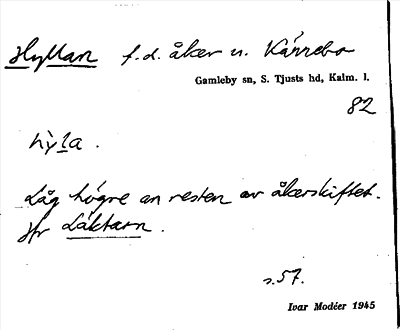 Hyllan f.d. åker u. Kärrebo
Gamleby sn, S. Tjusts hd, Kalm. l.
82
hỳla.
Låg högre än resten av åkerskiftet.
Jfr Läktarn.
s. 57.
Ivar Modéer 1945